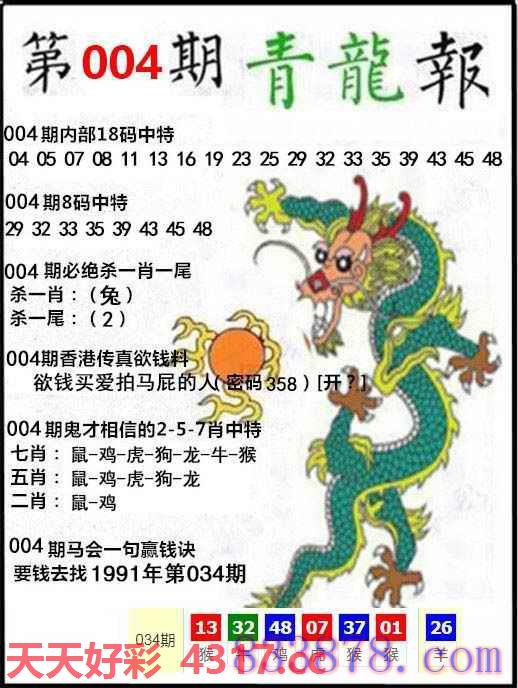 第004期青龍報
004期内部18码中特
04 05 07 08 11 13 16 19 23 25 29 32 33 35 39 43 45 48
004期8码中特
29 32 33 35 39 43 45 48
004期必绝杀一肖一尾
杀一肖：（兔）
杀一尾：（2）
004期香港传真欲钱料
欲钱买爱拍马屁的人（密码358）[开？]
004期鬼才相信的2-5-7肖中特
七肖：鼠-鸡-虎-狗-龙-牛-猴
五肖：鼠-鸡-虎-狗-龙
二肖：鼠-鸡
004期马会一句赢钱诀
要钱去找1991年第034期
034期 13 32 48 07 37 01 26
猴 牛 鸡 虎 猴 猴 羊
天天好彩 4317.cc 878.com